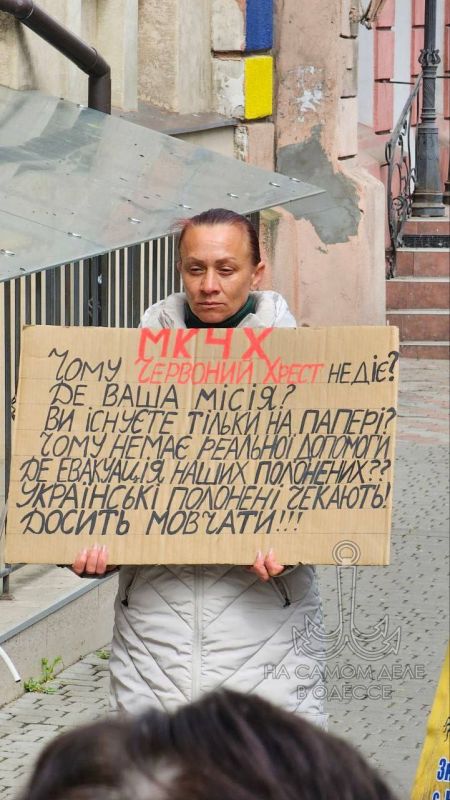 МКЧХ
ЧОМУ ЧЕРВОНИЙ ХРЕСТ НЕ ДІЄ?
ДЕ ВАША МІСІЯ?
ВИ ІСНУЄТЕ ТІЛЬКИ НА ПАПЕРІ?
ЧОМУ НЕМАЄ РЕАЛЬНОЇ ДОПОМОГИ
ДЕ ЕВАКУАЦІЯ НАШИХ ПОЛОНЕНИХ??
УКРАЇНСЬКІ ПОЛОНЕНІ ЧЕКАЮТЬ!
ДОСИТЬ МОВЧАТИ!!!
НА САМОМ ДЕЛЕ
В ОДЕССЕ